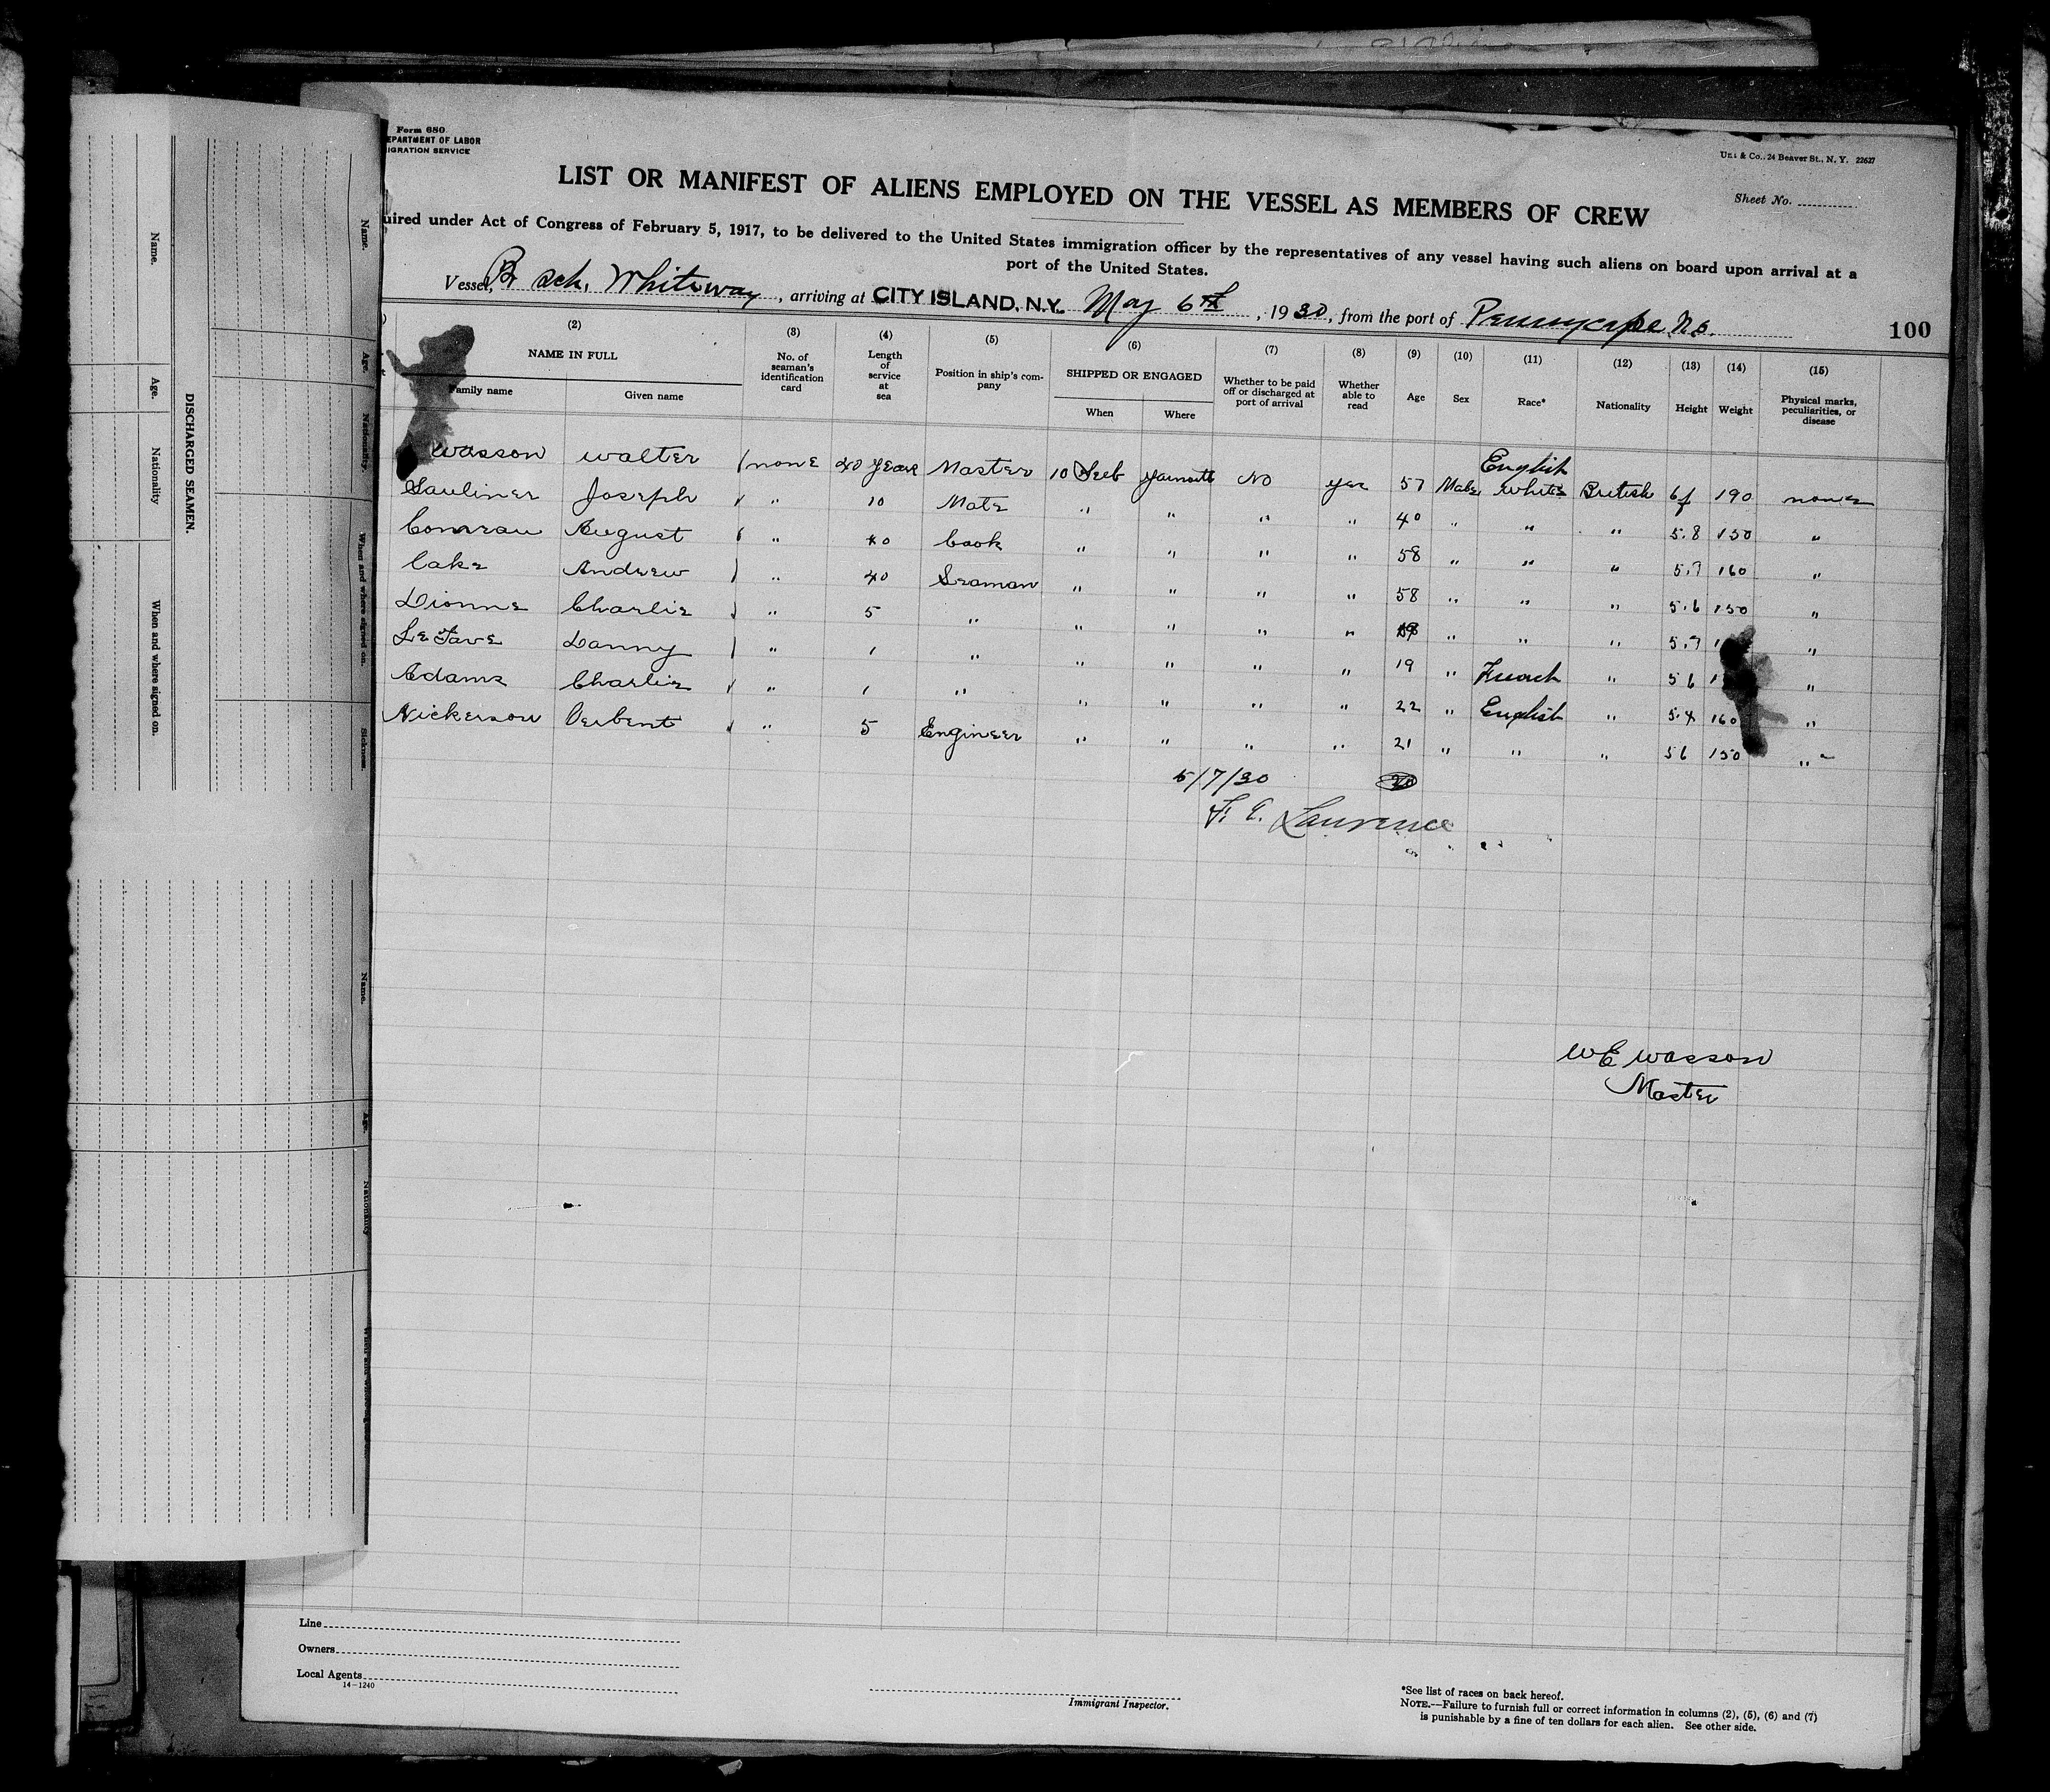 Form 680
EPARTMENT OF LABOR
IGRATION SERVICE
& Co., 24 Beaver St., N. Y. 22627
LIST OR MANIFEST OF ALIENS EMPLOYED ON THE VESSEL AS MEMBERS OF CREW
Sheet No.
uired under Act of Congress of February 5, 1917, to be delivered to the United States immigration officer by the representatives of any vessel having such aliens on board upon arrival at a
port of the United States.
Vessel, Br sch. Whiteway, arriving at CITY ISLAND, N.Y. May 6th, 1930, from the port of
100
(2) (3) (4) (5) (6) (7) (8) (9) (10) (11) (12) (13) (14) (15)
NAME IN FULL
Family name Given name
No. of seaman's identification card
Length of service at sea
Position in ship's company
SHIPPED OR ENGAGED
When Where
Whether to be paid off or discharged at port of arrival
Whether able to read
Age
Sex
Race*
Nationality
Height
Weight
Physical marks, peculiarities, or disease
Wasson Walter none 40 years Master 10 Yarmouth No yes 57 Male English White British 6f 190 none
Sauliner Joseph " 10 Mate " " " " 40 " " " 5.8 150 "
August " 40 Cook " " " " 58 " " " 5.7 160 "
Cake Andrew " 40 Seaman " " " " 58 " " " 5.6 150 "
Dionne Charlie " 5 " " " " " " " " 5.7 "
LeFave Danny " 1 " " " " " 19 " French " 5 6 "
Adams Charlie " 1 " " " " " 22 " English " 5.4 160 "
Nickerson " 5 Engineer " " " " 21 " " " 5 6 150 "
5/7/30 20
F. E. Laurence
W E Wasson
Master
Line
Owners
Local Agents
14-1240
Immigrant Inspector.
*See list of races on back hereof.
NOTE.—Failure to furnish full or correct information in columns (2), (5), (6) and (7)
is punishable by a fine of ten dollars for each alien. See other side.
DISCHARGED SEAMEN.
Name.
Age.
Nationality
When and where signed on.
Name.
Age.
Nationality
When and where signed on.
Sickness.
Name.
Age.
Nationality